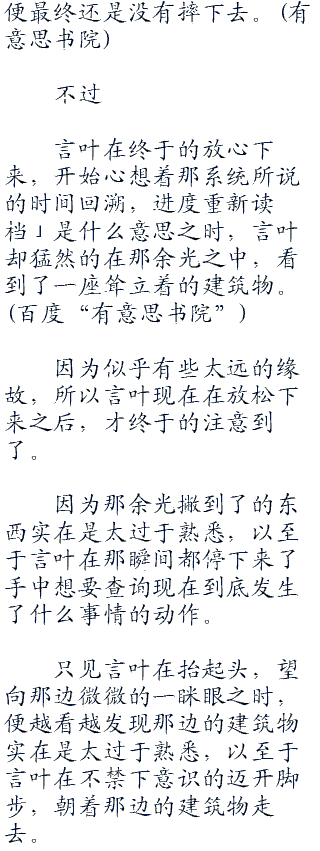 便最终还是没有摔下去。 (有
意思书院)
不过
言叶在终于的放心下
来，开始心想着那系统所说
的时间回溯，进度重新读
档」是什么意思之时，言叶
却猛然的在那余光之中，看
到了一座耸立着的建筑物。
(百度“有意思书院”)
因为似乎有些太远的缘
故，所以言叶现在在放松下
来之后，才终于的注意到
了。
因为那余光撇到了的东
西实在是太过于熟悉，以至
于言叶在那瞬间都停下来了
手中想要查询现在到底发生
了什么事情的动作。
只见言叶在抬起头，望
向那边微微的一眯眼之时，
便越看越发现那边的建筑物
实在是太过于熟悉，以至于
言叶在不禁下意识的迈开脚
步，朝着那边的建筑物走
去。